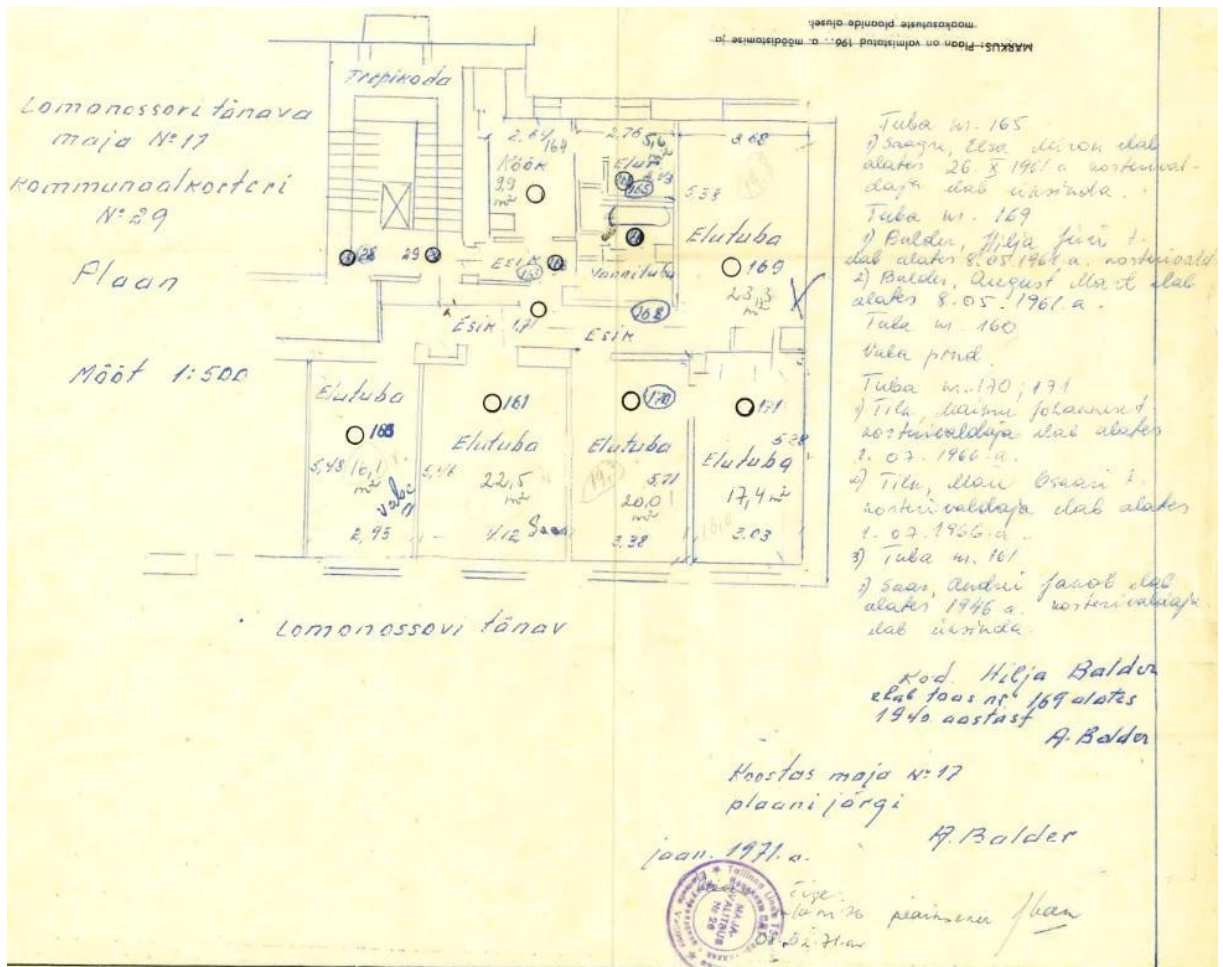 MÄRKUS: Plaan on valmistatud 196... a. mõõdistamise ja
maakasutuste plaanide alusel.
Lomonossovi tänava
maja № 17
kommunaalkorteri
№ 29
Plaan
Mõõt 1:500
Trepikoda
2.64
164
Köök
9,9
m²
2.76
5,6
m²
165
3.68
5,38
Elutuba
169
23,3
m²
29
Esik
Vannituba
168
Esik 1,71
Esik
Elutuba
5,43
16,1
m²
2,93
161
5,46
Elutuba
22,5
m²
4,12
170
Elutuba
5,71
20,0
m²
3.38
171
5.28
Elutuba
17,4 m²
3.03
Lomonossovi tänav
Tuba nr. 165
1) Saagu, Elsa Miron elab
alates 26. X 1961.a korterival-
daja elab üksinda.
Tuba nr. 169
1) Balder, Hilja Jüri t.
elab alates 8.05.1961.a. korterivald
2) Balder, August Mart elab
alates 8.05.1961.a.
Tuba nr. 160
Vaba pind.
Tuba nr. 170; 171
1) Tilk, Maimu Johannes t.
korterivaldaja elab alates
1.07.1966.a.
2) Tilk, Mari Oskari t.
korterivaldaja elab alates
1.07.1966.a.
3) Tuba nr. 161
1) Saar, Andrei Jakob elab
alates 1946 a. korterivaldaja
elab üksinda.
Kod. Hilja Balder
elab toas nr. 169 alates
1940 aastast
A. Balder
Koostas maja № 17
plaani järgi
A. Balder
jaan. 1971. a.
MAJA-
VALITSUS
Nr 26
Õige:
peainsener
08.02.71.a